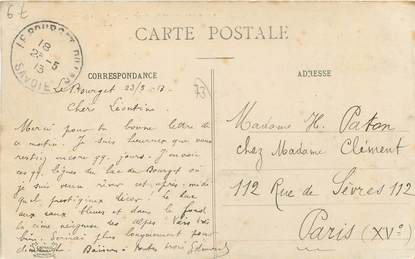 6t
CARTE POSTALE
LE BOURGET DU LAC
18
23-5
13
SAVOIE
CORRESPONDANCE
ADRESSE
Le Bourget 23/5 - 13
73
Chère Léontine
Merci pour ta bonne lettre de
ce matin. Je suis heureux que vous
restiez encore qq. jours. J'envoie
ces qq. lignes du lac du Bourget où
je suis venu rêver cet après-midi
quel prestigieux décor : le lac
aux eaux bleues et dans le fond
la cime neigeuse des Alpes. Vais très
bien. Ecrirai plus longuement
dimanche. Baisers à toutes trois Edmond
Madame H. Paton
chez Madame Clément
112 Rue de Sèvres 112
Paris (XVe)